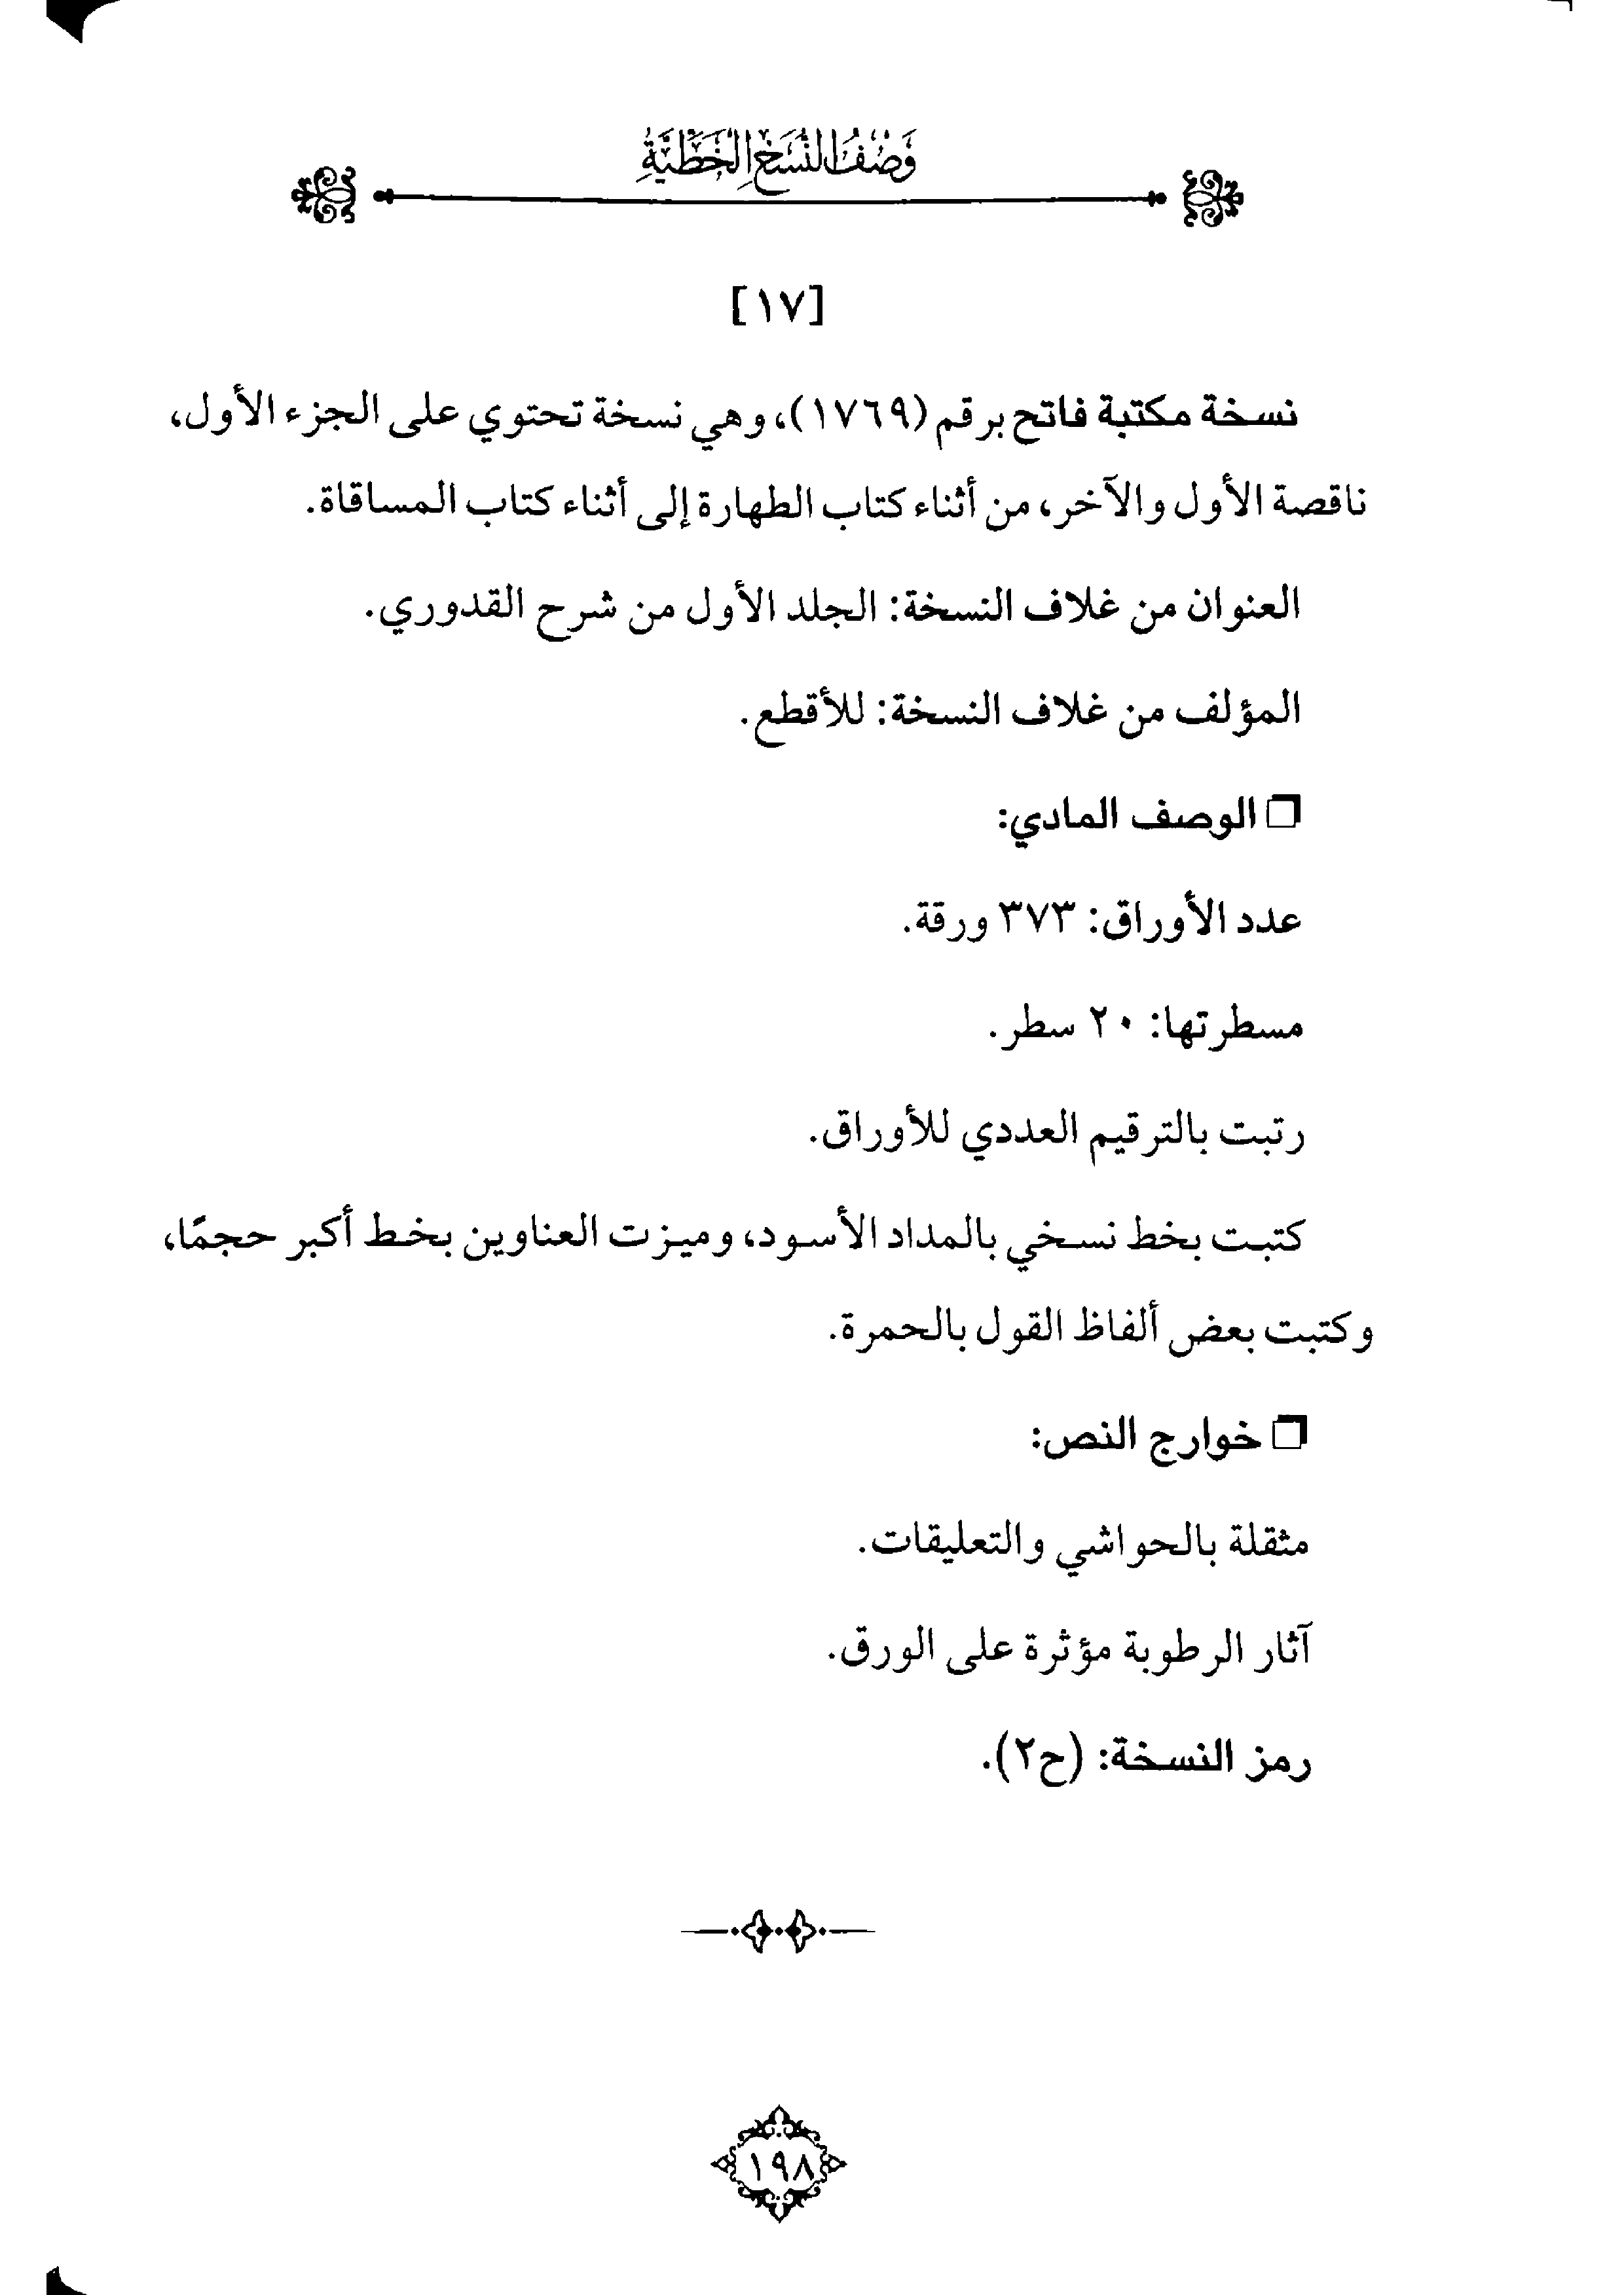 وَصْفُ النُّسَخِ الخَطِّيَّةِ
[١٧]
نسخة مكتبة فاتح برقم (١٧٦٩)، وهي نسخة تحتوي على الجزء الأول،
ناقصة الأول والآخر، من أثناء كتاب الطهارة إلى أثناء كتاب المساقاة.
العنوان من غلاف النسخة: الجلد الأول من شرح القدوري.
المؤلف من غلاف النسخة: للأقطع.
❒ الوصف المادي:
عدد الأوراق: ٣٧٣ ورقة.
مسطرتها: ٢٠ سطر.
رتبت بالترقيم العددي للأوراق.
كتبت بخط نسخي بالمداد الأسود، وميزت العناوين بخط أكبر حجمًا،
وكتبت بعض ألفاظ القول بالحمرة.
❒ خوارج النص:
مثقلة بالحواشي والتعليقات.
آثار الرطوبة مؤثرة على الورق.
رمز النسخة: (ح٢).
١٩٨